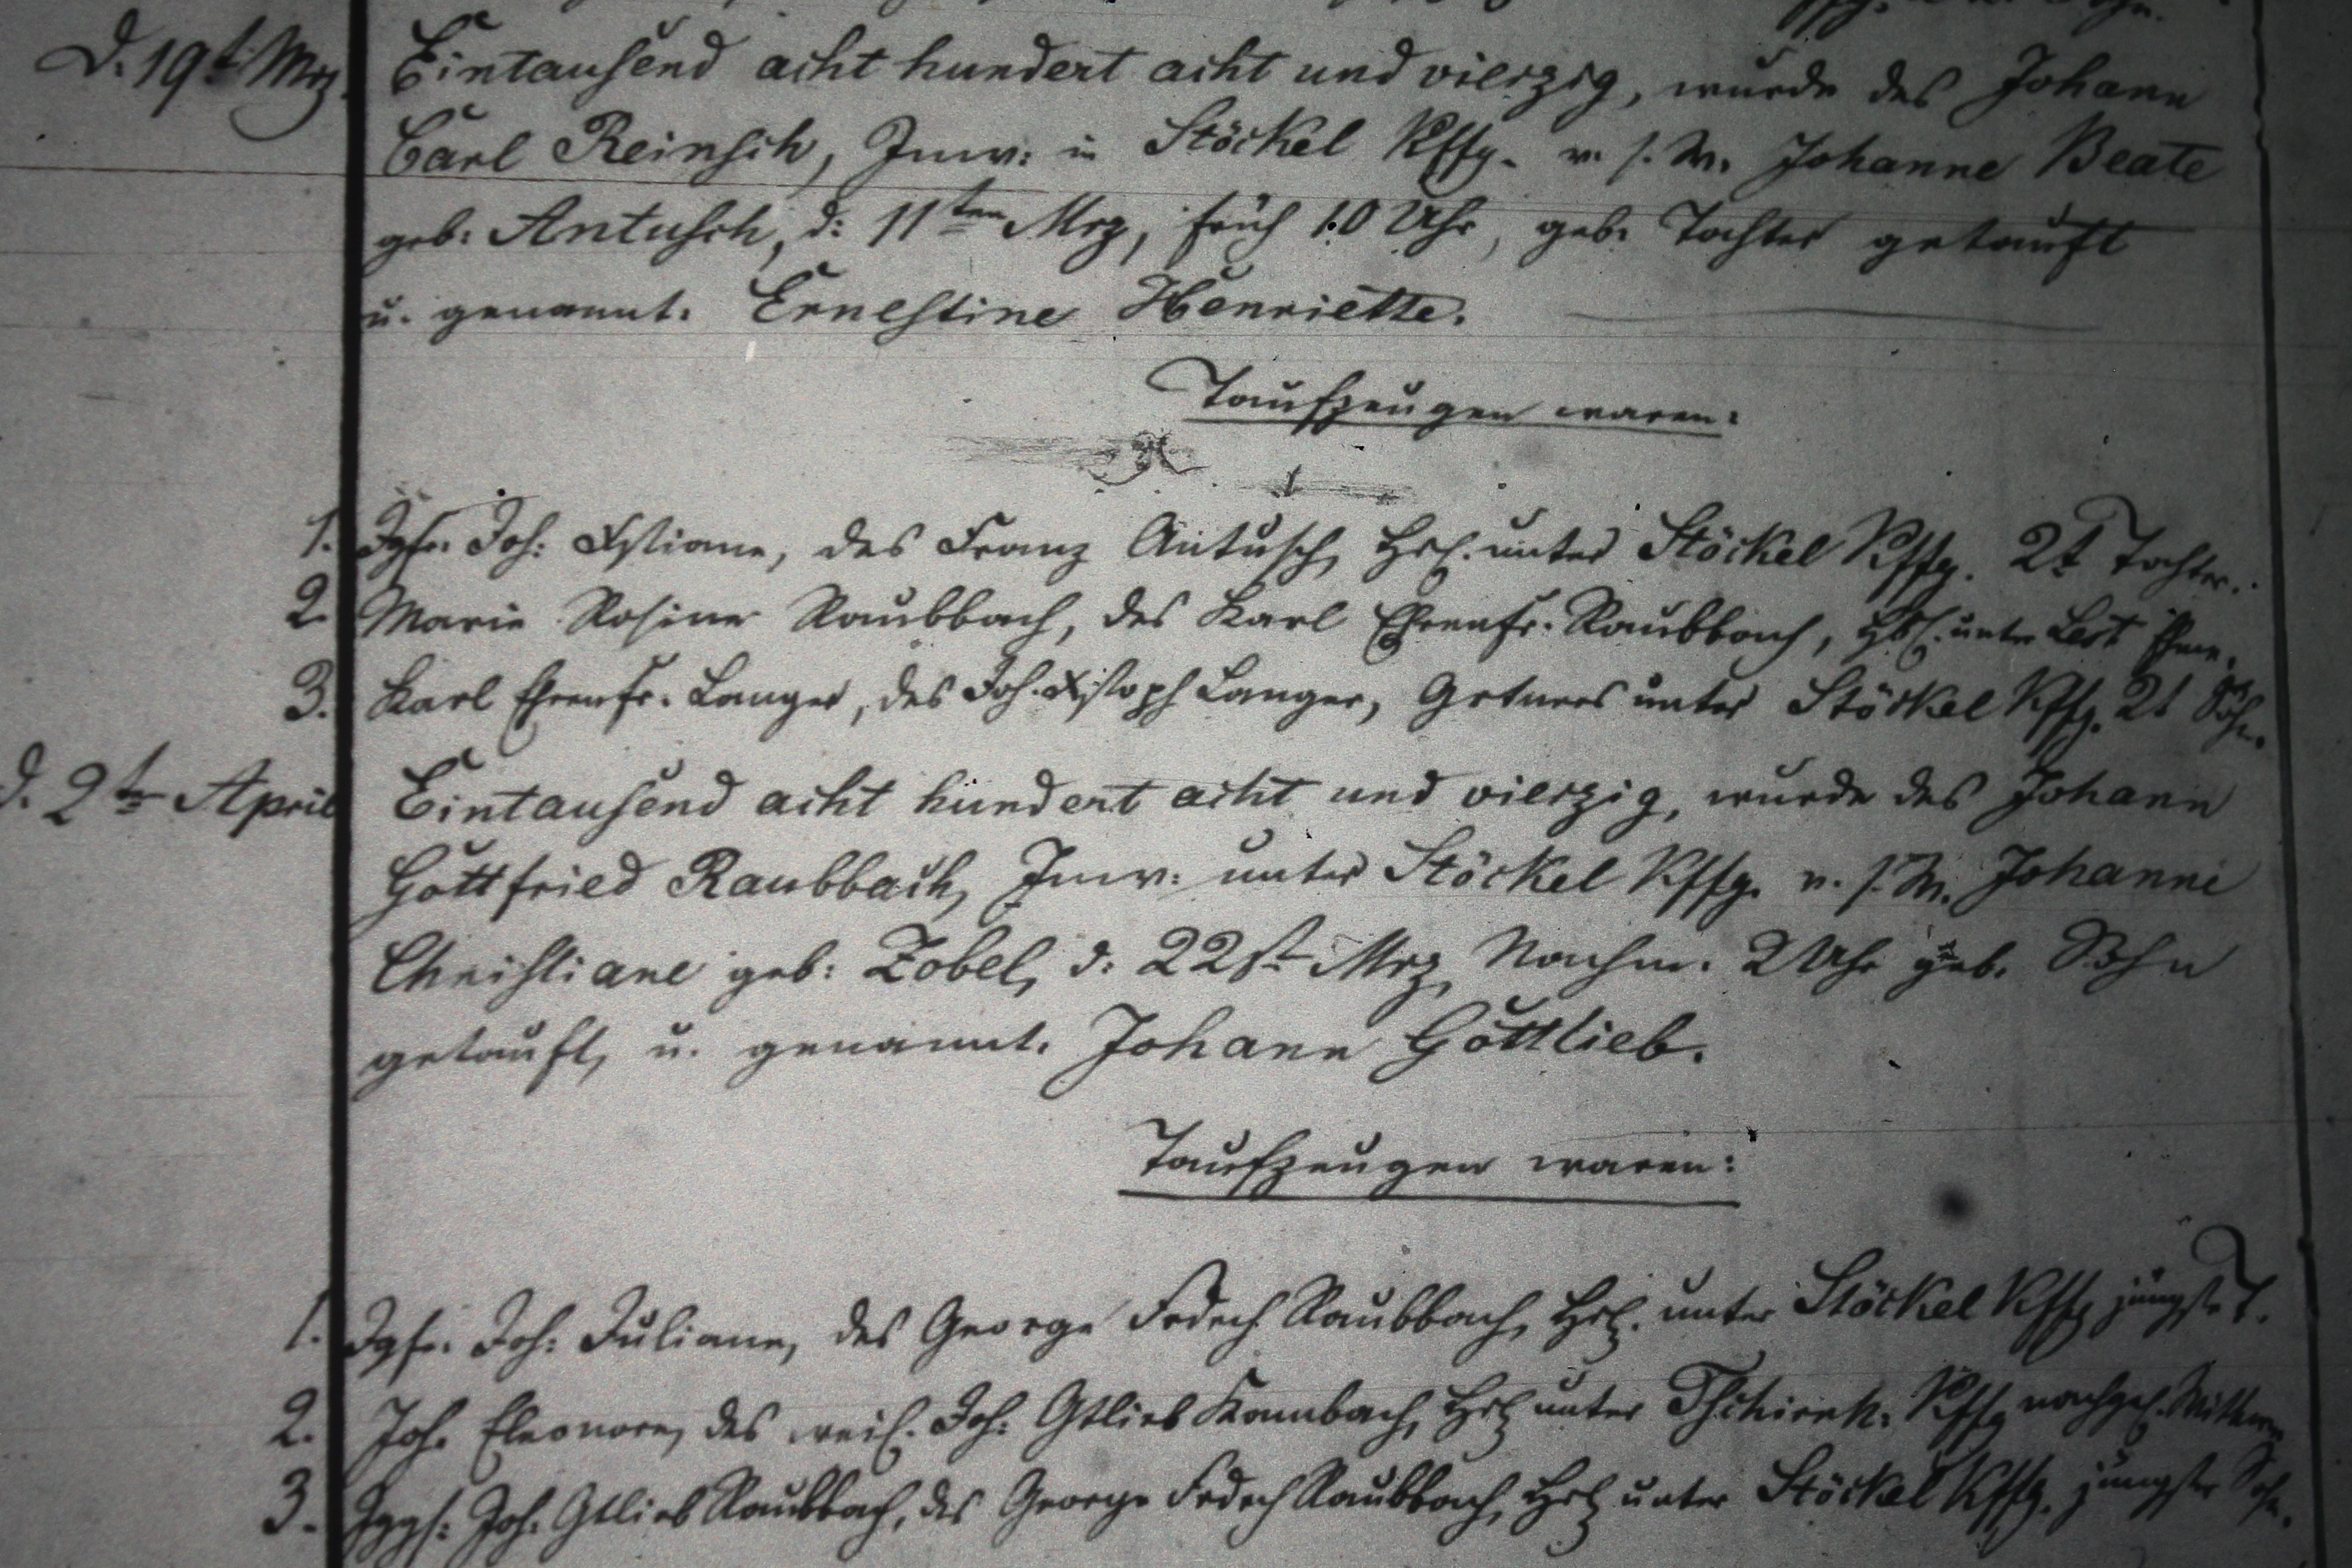 d. 19t Mrz.
Eintausend acht hundert acht und vierzig, wurde des Johann
Carl Reinsch, Inw: in Stöckel Kffg. v. s. W. Johanne Beate
geb: Antusch, d: 11ten Mrz, früh 10 Uhr, geb. Tochter getauft
u. genannt. Ernestine Henriette.
Taufzeugen waren:
1. Jgfr. Joh: Xstiane, des Franz Antusch, Hsl. unter Stöckel Kffg. 2t Tochter.
2. Marie Rosine Raubbach, des Karl Ehrenfr. Raubbach, unter
3. Karl Ehrenfr. Langer, des Joh. Xstoph Langer, Grtners unter Stöckel Kffg. 2t Sohn.
d. 2tn April
Eintausend acht hundert acht und vierzig, wurde des Johann
Gottfried Raubbach, Inw: unter Stöckel Kffg. v. s. W. Johanne
Christiane geb: Zobel, d: 22st Mrz, Nachm. 2 Uhr geb. Sohn
getauft, u. genannt. Johann Gottlieb.
Taufzeugen waren:
1. Jgfr. Joh: Juliane, des George Frdrch Raubbach, Hsl. unter Stöckel Kffg jüngste T.
2. Joh. Eleonore, des weil. Joh: Gtlieb Kambach, Hsl unter Tschirnk. Kffg nachgel. Wittwe
3. Jggs: Joh. Gtlieb Raubbach, des George Frdrch Raubbach, Hsl unter Stöckel Kffg. jüngster Sohn.